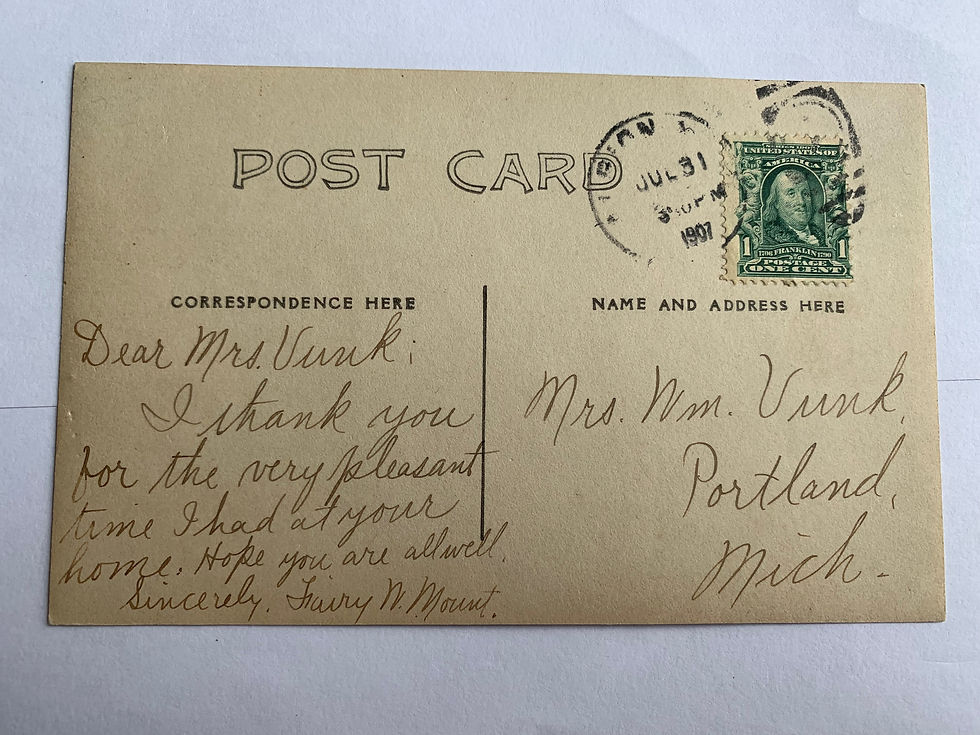 POST CARD
JUL 31
PM
1907
SERIES 1902
UNITED STATES OF
AMERICA
1 1706 FRANKLIN 1790 1
POSTAGE
ONE CENT
CORRESPONDENCE HERE
NAME AND ADDRESS HERE
Dear Mrs. Vunk;
I thank you
for the very pleasant
time I had at your
home. Hope you are all well.
Sincerely, Fairy W. Mount.
Mrs. Wm. Vunk,
Portland,
Mich.